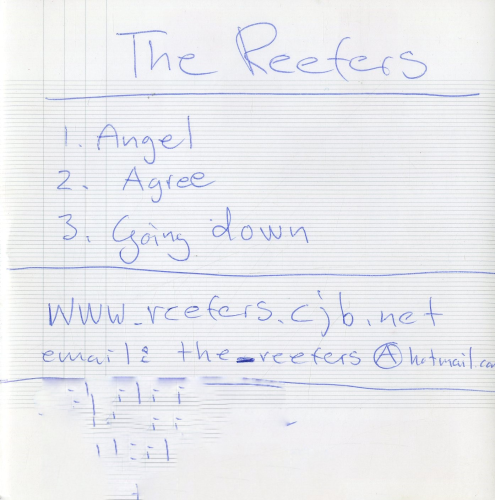 The Reefers
1. Angel
2. Agree
3. Going down
www.reefers.cjb.net
email: the_reefers @hotmail.com